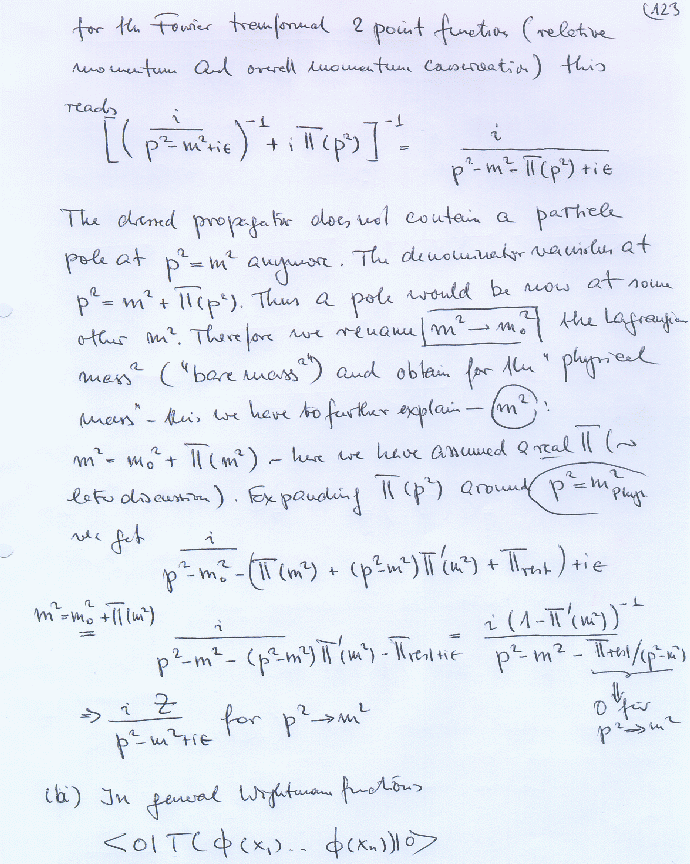 (123
for the Fourier transformed 2 point function (relative
momentum and overall momentum conservation) this
reads
[(i/(p²-m²+iε))⁻¹ + iΠ(p²)]⁻¹ = i/(p²-m²-Π(p²)+iε)
The dressed propagator does not contain a particle
pole at p²=m² anymore. The denominator vanishes at
p²=m²+Π(p²). Thus a pole would be now at some
other m². Therefore we rename m²→m₀² the Lagrangian
mass² ("bare mass²") and obtain for the "physical
mass" - this we have to further explain - m²:
m²=m₀²+Π(m²) - here we have assumed a real Π (~
later discussion). Expanding Π(p²) around p²=m²phys
we get i/(p²-m₀²-(Π(m²)+(p²-m²)Π'(m²)+Πrest)+iε)
m²=m₀²+Π(m²) i/(p²-m²-(p²-m²)Π'(m²)-Πrest+iε) = i(1-Π'(m²))⁻¹/(p²-m²-Πrest/(p²-m²))
⇒ iZ/(p²-m²+iε) for p²→m² ⇓ 0 für
p²→m²
(bi) In general Wightman functions
<0|T(φ(x₁)..φ(xₙ))|0>